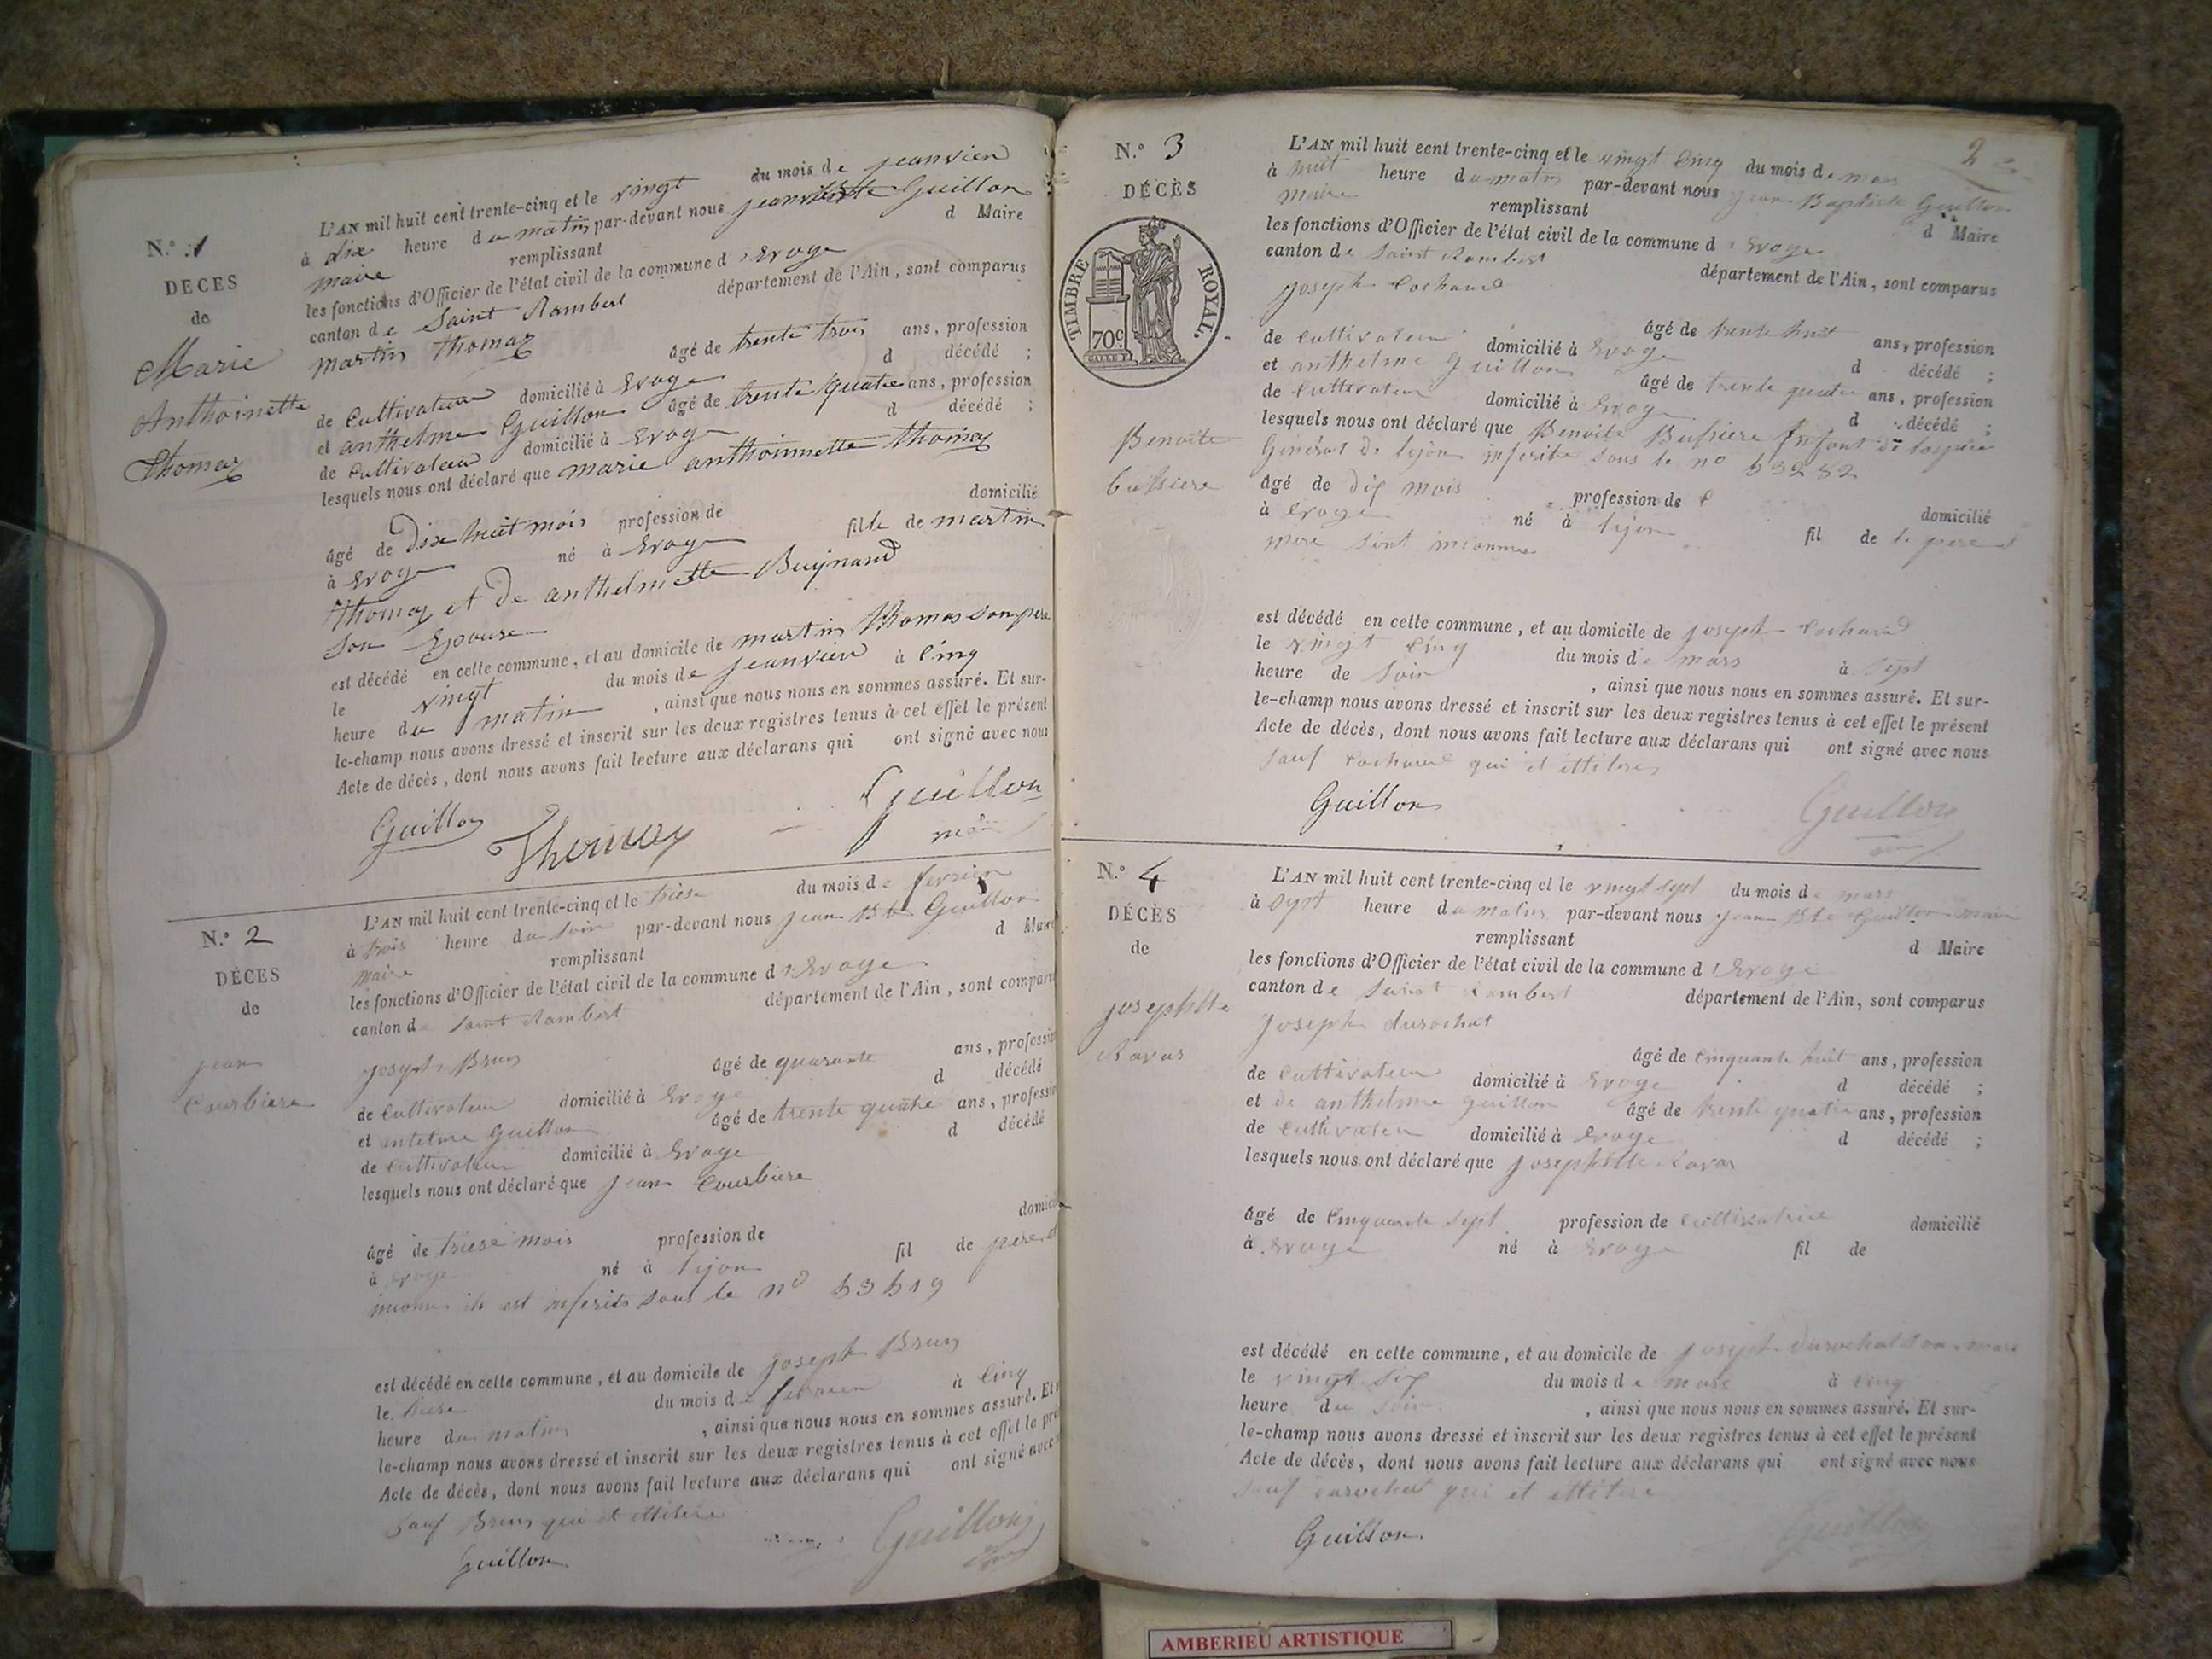 N.° 1
DÉCES
de
Marie
Anthoinette
Thomaz
L'AN mil huit cent trente-cinq et le vingt du mois de jeanvien
à dix heure du matin par-devant nous jean bte Guillon
maire remplissant d Maire
les fonctions d'Officier de l'état civil de la commune d'Evoge
canton de Saint Rambert département de l'Ain, sont comparus
martin thomaz âgé de trente trois ans, profession
de Cultivateur domicilié à Evoge d décédé ;
et anthelme Guillon âgé de trente quatre ans, profession
de Cultivateur domicilié à Evoge d décédé ;
lesquels nous ont déclaré que marie anthoinnette thomaz
âgé de Dix huit mois profession de domicilié
à Evoge né à Evoge fille de martin
thomaz et de anthelmette Buynand
son Epouse
est décédé en cette commune, et au domicile de martin thomas son pere
le vingt du mois de jeanvien à Cinq
heure du matin , ainsi que nous nous en sommes assuré. Et sur-
le-champ nous avons dressé et inscrit sur les deux registres tenus à cet effet le présent
Acte de décès, dont nous avons fait lecture aux déclarans qui ont signé avec nous
Guillon Thomaz Guillon
N.° 2
DÉCES
de
jean
Courbiere
L'AN mil huit cent trente-cinq et le treise du mois de fevrien
à trois heure du soir par-devant nous jean Bte Guillon
maire remplissant d Maire
les fonctions d'Officier de l'état civil de la commune d'Evoge
canton d Saint Rambert département de l'Ain, sont comparu
joseph Brun âgé de quarante ans, profession
de Cultivateur domicilié à Evoge d décédé
et antelme Guillon âgé de trente quatre ans, profession
de Cultivateur domicilié à Evoge d décédé
lesquels nous ont déclaré que jean Courbiere
âgé de treise mois profession de domici
à Evoge né à lijon fil de pere et
inconnu il est inscrit sous le n° 53519
est décédé en cette commune, et au domicile de joseph Brun
le treise du mois de fevrien à Cinq
heure du matin , ainsi que nous nous en sommes assuré. Et
le-champ nous avons dressé et inscrit sur les deux registres tenus à cet effet le pré
Acte de décès, dont nous avons fait lecture aux déclarans qui ont signé avec
sauf Brun qui et ittitere
Guillon Guillon
2
N.° 3
DÉCÈS
TIMBRE ROYAL.
70c
Benoite
bussiere
L'AN mil huit cent trente-cinq et le vingt Cinq du mois de mars
à huit heure du matin par-devant nous jean Baptiste Guillon
maire remplissant d Maire
les fonctions d'Officier de l'état civil de la commune d'Evoge
canton de Saint Rambert département de l'Ain, sont comparus
joseph Cochard âgé de trente huit ans, profession
de Cultivateur domicilié à Evoge d décédé ;
et anthelme Guillon âgé de trente quatre ans, profession
de Cultivateur domicilié à Evoge d décédé ;
lesquels nous ont déclaré que Benoite Bussiere Enfant de lospice
Général de lijon inscrite sous le n° 53282
âgé de Dix mois profession de domicilié
à Evoge né à lijon fil de le pere et
mere sont inconnus
est décédé en cette commune, et au domicile de joseph Cochard
le vingt Cinq du mois de mars à sept
heure de soir , ainsi que nous nous en sommes assuré. Et sur-
le-champ nous avons dressé et inscrit sur les deux registres tenus à cet effet le présent
Acte de décès, dont nous avons fait lecture aux déclarans qui ont signé avec nous
sauf Cochard qui et ittitere
Guillon Guillon
N.° 4
DÉCÈS
de
josephtte
Ravas
L'AN mil huit cent trente-cinq et le vingt sept du mois de mars
à sept heure du matin par-devant nous jean Bte Guillon maire
remplissant d Maire
les fonctions d'Officier de l'état civil de la commune d'Evoge
canton de Saint Rambert département de l'Ain, sont comparus
joseph durochat âgé de Cinquante huit ans, profession
de Cultivateur domicilié à Evoge d décédé ;
et de anthelme Guillon âgé de trente quatre ans, profession
de Cultivateur domicilié à Evoge d décédé ;
lesquels nous ont déclaré que josephette Ravas
âgé de Cinquante sept profession de Cultivatrice domicilié
à Evoge né à Evoge fil de
est décédé en cette commune, et au domicile de joseph durochat son mari
le vingt six du mois de mars à Cinq
heure du soir , ainsi que nous nous en sommes assuré. Et sur-
le-champ nous avons dressé et inscrit sur les deux registres tenus à cet effet le présent
Acte de décès, dont nous avons fait lecture aux déclarans qui ont signé avec nous
sauf durochat qui et ittitere
Guillon Guillon
AMBERIEU ARTISTIQUE